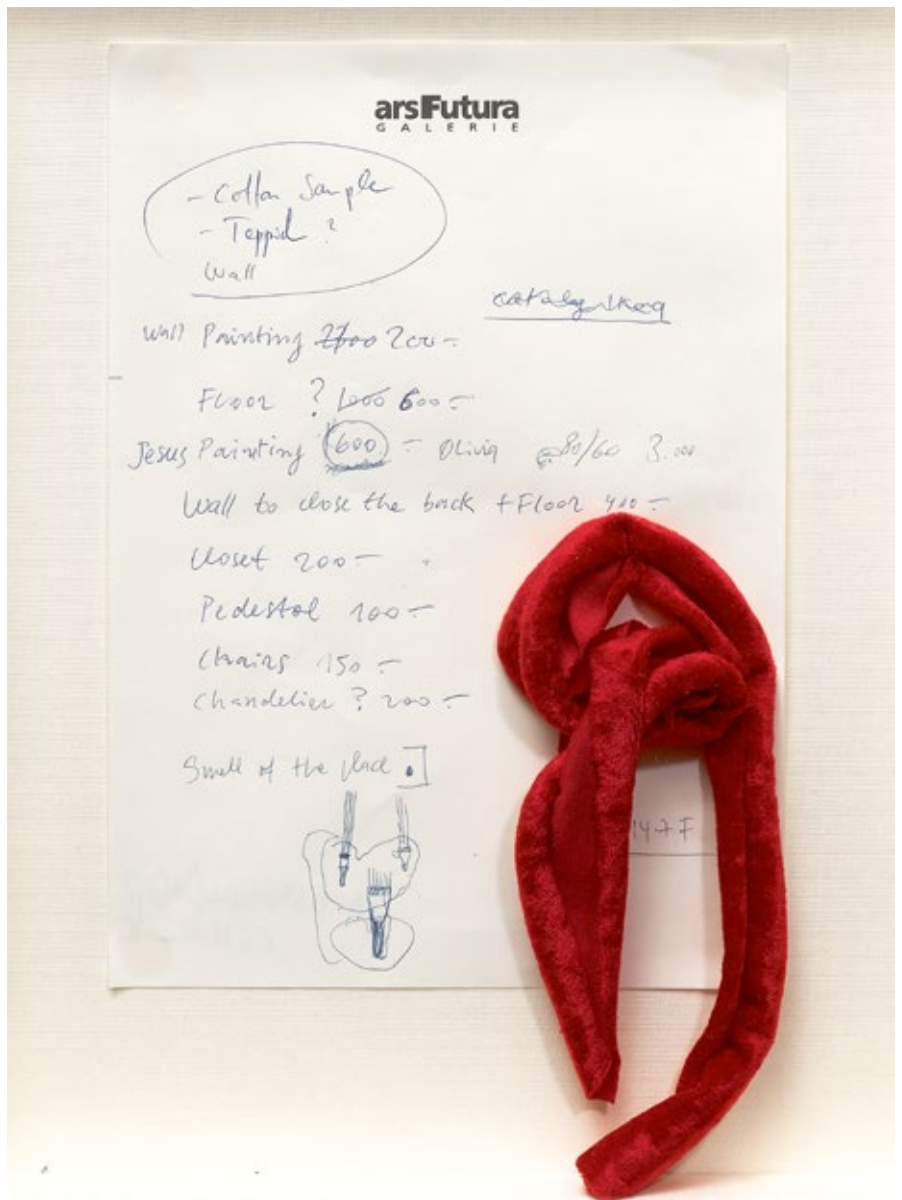 arsFutura
GALERIE
- Cotton Sample
- Teppich ?
Wall
Wall Painting 200.-
Floor ? 1000 600.-
Jesus Painting 600 - Olivia 80/60 3.000
Wall to close the back + Floor 400.-
Closet 200.-
Pedestal 100.-
Chairs 150.-
Chandelier ? 200.-
Smell of the place
147F